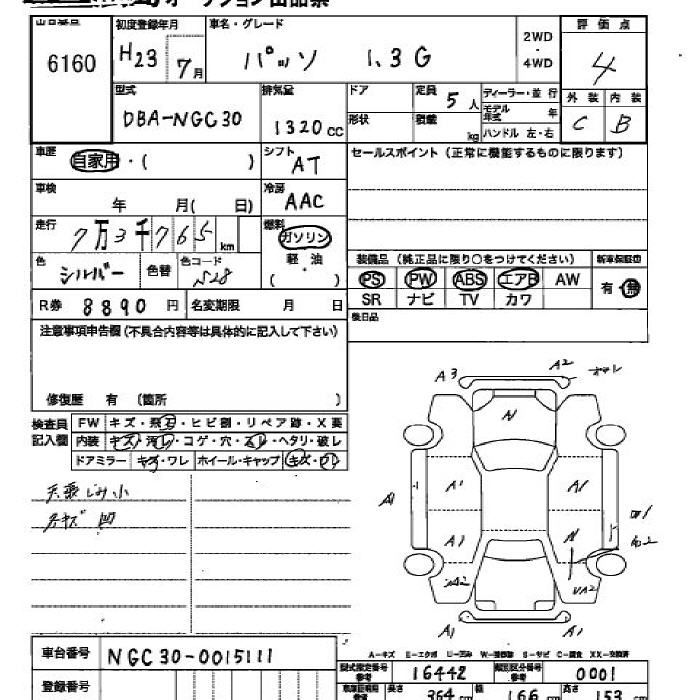 オークション出品票
出品番号 初度登録年月 車名・グレード 2WD・4WD 評価点
6160 H23 7月 パッソ 1.3G 4
型式 排気量 ドア 定員 5人 ディーラー・並行 外装 内装
DBA-NGC30 1320cc 形状 積載 kg モデル年式 年 ハンドル 左・右 C B
車歴 自家用・( ) シフト AT セールスポイント(正常に機能するものに限ります)
車検 年 月( 日) 冷房 AAC
走行 7万3千765km 燃料 ガソリン 軽油 ( )
色 シルバー 色替 色コード S28 装備品 (純正品に限り○をつけてください) 新車保証書
PS PW ABS エアB AW 有・無
R券 8890円 名変期限 月 日 SR ナビ TV カワ
注意事項申告欄(不具合内容等は具体的に記入して下さい) 後日品
修復歴 有 (箇所 )
検査員記入欄 FW キズ・飛石・ヒビ割・リペア跡・X要
内装 キズ・汚レ・コゲ・穴・スレ・ヘタリ・破レ
ドアミラー キズ・ワレ ホイール・キャップ キズ・ワレ
小
凹
A3 A2
N
A1 A1 A1
A1 N
A2 A2
A1 A1
A-キズ E-エクボ U-凹み W-補修跡 S-サビ C-腐食 XX-交換済
車台番号 NGC30-0015111
型式指定番号 参考 16442 類別区分番号 参考 0001
登録番号
長さ 364cm 幅 166cm 高さ 153cm